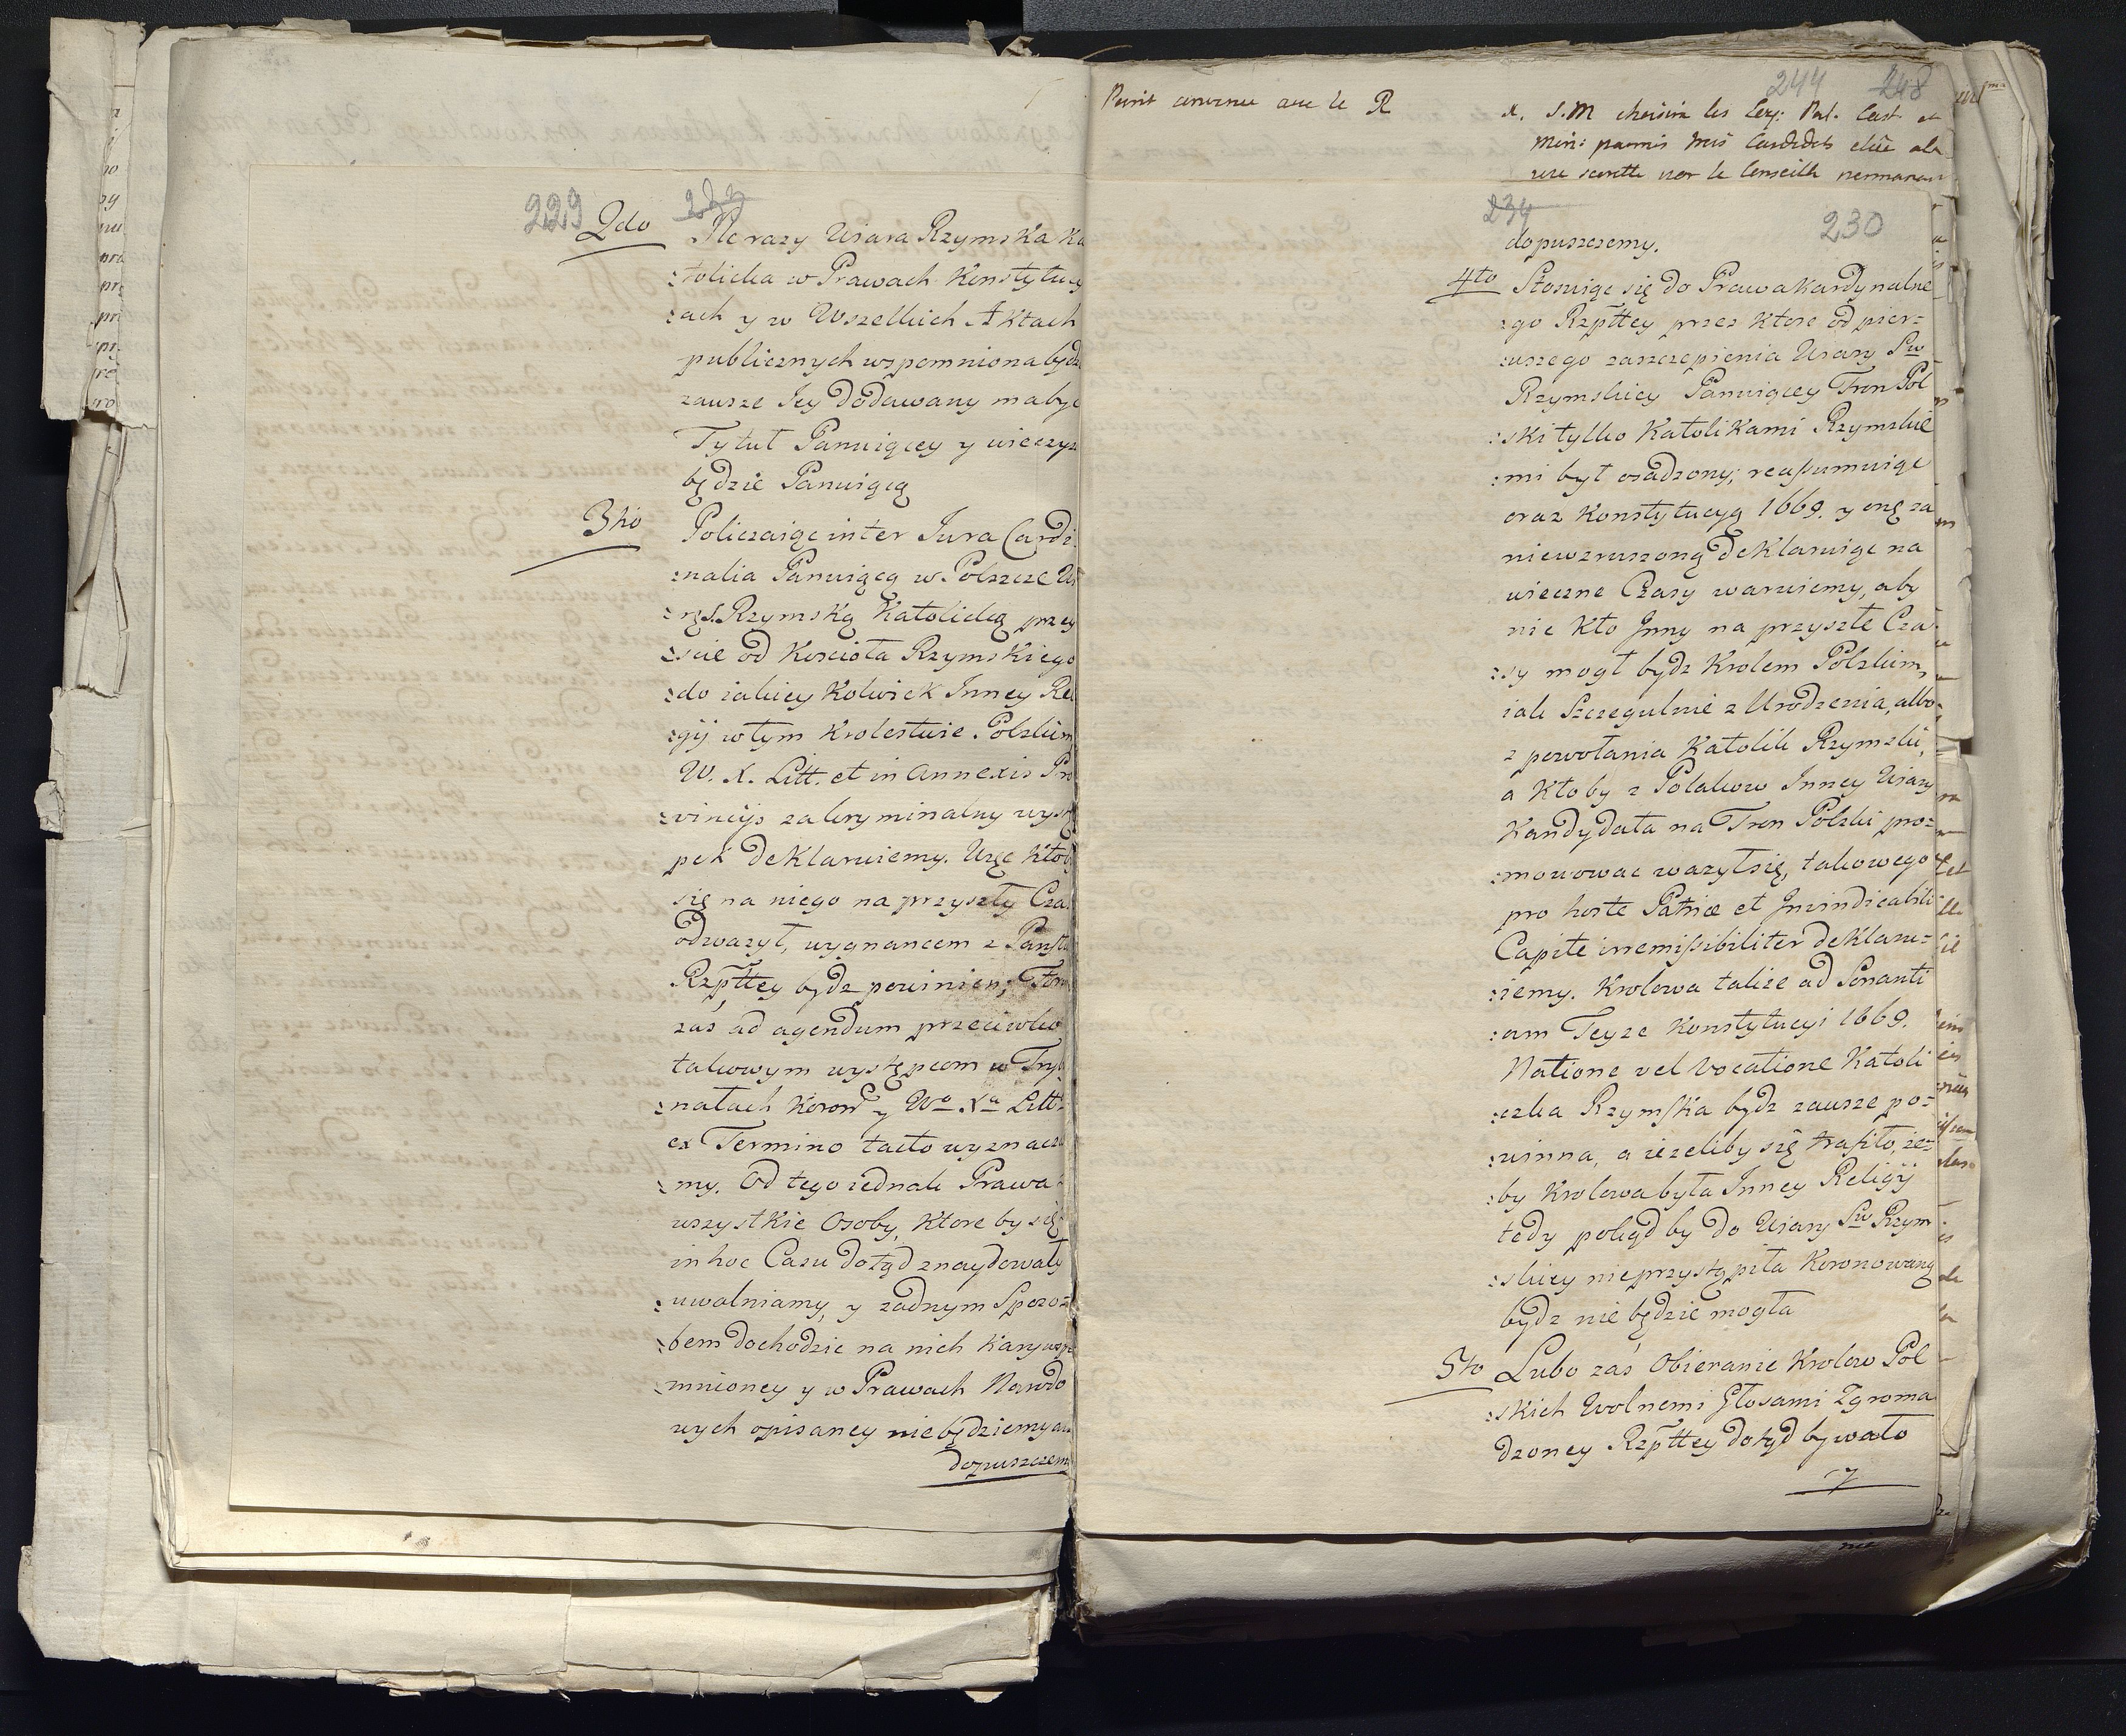 229
2do Ile razy Wiara Rzymska Ka
:tolicka w Prawach Konstytucy
:ach y w Wszelkich Aktach
publicznych wspomniona będz
zawsze Jey dodawany ma być
Tytuł Panuiącey y wieczyś
będzie Panuiącą
3tio Policzaiąc inter Jura Cardi
:nalia Panuiącą w Polszcze Wi
:rę S. Rzymską Katolicką przey
:scie od Koscioła Rzymskiego
:do iakiey kolwiek Inney Rel
:gij w tym Krolestwie Polskim
W. X. Litt. et in Annexis Pro
:vincijs za kryminalny wystę
pek deklaruiemy. Więc ktoby
się na niego na przyszły Czas
odwazył, wygnancem z Państw
Rzpttey bydz powinien; Forum
zas ad agendum przeciwko
takowym występcom w Tryb
:nałach Koron y Wo Xa Litt.
ex Termino tacto wyznacza
:my. Od tego iednak Prawa
wszystkie Osoby, ktore by się
in hoc Casu dotąd znaydowały
:uwalniamy, y zadnym Sposo:
:bem dochodzic na nich kary wspo
:mnioney y w Prawach Narodo
wych opisaney nie będziemy
dopuszczemy
Point convenu avec le R
244 248
x. S. M choisira les Sen: Pal. Cast. et
Min: parmis trois Candidats elûs
par le Conseille permanent
234
230
dopuszczemy.
4to Stosuiąc się do Prawa kardynalne
:go Rzpttey przez ktore od pier:
:wszego zaszczepienia Wiary Sw
Rzymskiey Panuiącey Tron Pol
:ski tylko Katolikami Rzymskie
:mi był osadzony; reassumuiąc
oraz Konstytucyą 1669. y onę za
niewzruszoną deklaruiąc na
wieczne Czasy waruiemy, aby
nie kto Inny na przyszłe Cza
:sy mogł bydz Krolem Polskim,
iak Szczegulnie z Urodzenia, albo
z powołania Katolik Rzymski,
a ktoby z Polakow Inney Wiary
Kandydata na Tron Polski pro:
:mowowac wazył się, takowego
pro hoste Patriæ et Invindicabili
Capite irremissibiliter deklaru:
:iemy. Krolowa takze ad Sonanti
:am Teyze Konstytucyi 1669.
Natione vel Vocatione Katoli
:czka Rzymska bydz zawsze po:
:winna, a iezeliby się trafiło, ze:
:by Krolowa była Inney Religij
tedy pokąd by do Wiary Sw Rzym
:skiey nie przystąpiła Koronowaną
bydz nie będzie mogła
5to Lubo zaś Obieranie Krolow Pol
:skich Wolnemi Głosami Zgroma
dzoney Rzpttey dotąd bywało
y